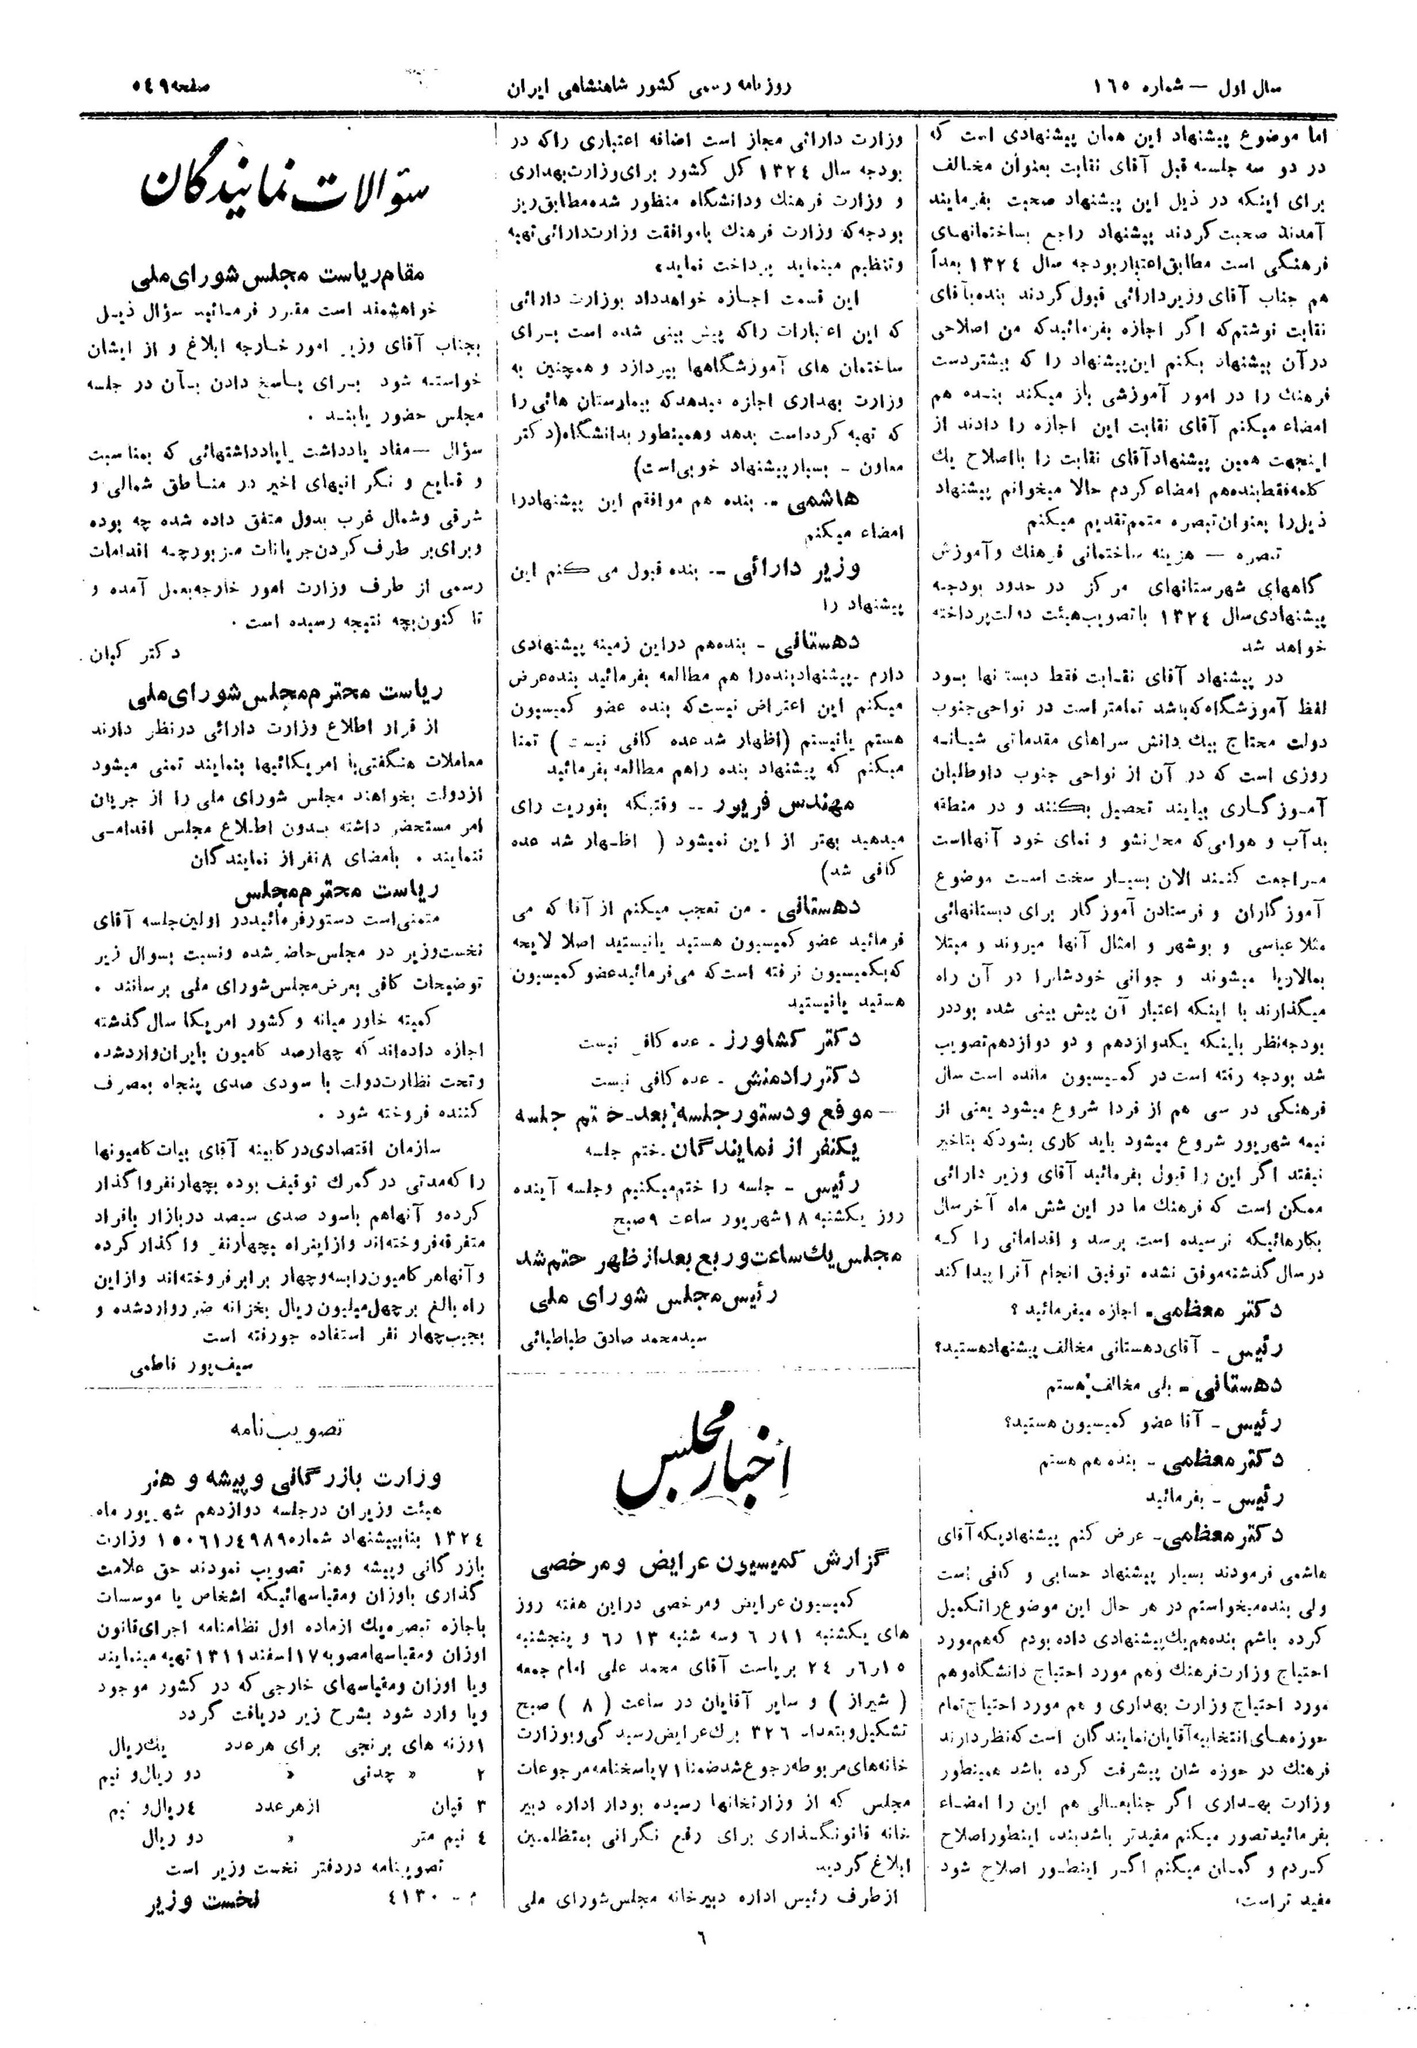 سال اول — شماره ۱۶۵
روزنامه رسمی کشور شاهنشاهی ایران
صفحه ۵۴۹
اما موضوع پیشنهاد این همان پیشنهادی است که
در دو سه جلسه قبل آقای نقابت بعنوان مخالف
برای اینکه در ذیل این پیشنهاد صحبت بفرمایند
آمدند صحبت کردند پیشنهاد راجع بساختمانهای
فرهنگی است مطابق اعتبار بودجه سال ۱۳۲۴ بعداً
هم جناب آقای وزیر دارائی قبول کردند بنده بآقای
نقابت نوشتم که اگر اجازه بفرمائید که من اصلاحی
در آن پیشنهاد بکنم این پیشنهاد را که بیشتر دست
فرهنك را در امور آموزشی باز میکند بنده هم
امضاء میکنم آقای نقابت این اجازه را دادند از
اینجهت همین پیشنهاد آقای نقابت را با اصلاح یك
کلمه فقط بنده هم امضاء کردم حالا میخوانم پیشنهاد
ذیل را بعنوان تبصره متمم تقدیم میکنم
تبصره — هزینه ساختمانی فرهنك و آموزش
گاههای شهرستانهای مرکز در حدود بودجه
پیشنهادی سال ۱۳۲۴ با تصویب هیئت دولت پرداخته
خواهد شد
در پیشنهاد آقای نقابت فقط دبستانها بود
لفظ آموزشگاه که باشد تمامتر است در نواحی جنوب
دولت محتاج بیك دانش سراهای مقدماتی شبانه
روزی است که در آن از نواحی جنوب داوطلبان
آموزگاری بیایند تحصیل بکنند و در منطقه
بدآب و هوائی که محل نشو و نمای خود آنهااست
مراجعت کنند الان بسیار سخت است موضوع
آموزگاران و فرستادن آموزگار برای دبستانهائی
مثلا عباسی و بوشهر و امثال آنها میروند و مبتلا
بمالاریا میشوند و جوانی خودشانرا در آن راه
میگذارند با اینکه اعتبار آن پیش بینی شده بوددر
بودجه نظر باینکه یکدوازدهم و دو دوازدهم تصویب
شد بودجه رفته است در کمیسیون مانده است سال
فرهنگی در سی هم از فردا شروع میشود یعنی از
نیمه شهریور شروع میشود باید کاری بشود که بتاخیر
نیفتد اگر این را قبول بفرمائید آقای وزیر دارائی
ممکن است که فرهنك ما در این شش ماه آخر سال
بکارهائیکه نرسیده است برسد و اقداماتی را که
در سال گذشته موفق نشده توفیق انجام آنرا پیدا کند
دکتر معظمی - اجازه میفرمائید ؟
رئیس - آقای دهستانی مخالف پیشنهاد هستید؟
دهستانی - بلی مخالف هستم
رئیس - آقا عضو کمیسیون هستید؟
دکتر معظمی - بنده هم هستم
رئیس - بفرمائید
دکتر معظمی - عرض کنم پیشنهادیکه آقای
هاشمی فرمودند بسیار پیشنهاد حسابی و کافی است
ولی بنده میخواستم در هر حال این موضوع را تکمیل
کرده باشم بنده هم یك پیشنهادی داده بودم که هم مورد
احتیاج وزارت فرهنك و هم مورد احتیاج دانشگاه و هم
مورد احتیاج وزارت بهداری و هم مورد احتیاج تمام
حوزه های انتخابیه آقایان نمایندگان است که نظر دارند
فرهنك در حوزه شان پیشرفت کرده باشد همینطور
وزارت بهداری اگر جنابعالی هم این را امضاء
بفرمائید تصور میکنم مفیدتر باشد بنده اینطور اصلاح
کردم و گمان میکنم اگر اینطور اصلاح شود
مفید تر است
وزارت دارائی مجاز است اضافه اعتباری راکه در
بودجه سال ۱۳۲۴ کل کشور برای وزارت بهداری
و وزارت فرهنك و دانشگاه منظور شده مطابق ریز
بودجه که وزارت فرهنك با موافقت وزارت دارائی تهیه
و تنظیم مینماید پرداخت نماید»
این قسمت اجازه خواهد داد بوزارت دارائی
که این اعتبارات راکه پیش بینی شده است برای
ساختمان های آموزشگاهها بپردازد و همچنین به
وزارت بهداری اجازه میدهد که بیمارستان هائی را
که تهیه کرده است بدهد و همینطور بدانشگاه (دکتر
معاون - بسیار پیشنهاد خوبی است)
هاشمی - بنده هم موافقم این پیشنهاد را
امضاء میکنم
وزیر دارائی - بنده قبول می کنم این
پیشنهاد را
دهستانی - بنده هم در این زمینه پیشنهادی
دارم - پیشنهاد بنده را هم مطالعه بفرمائید بنده عرض
میکنم این اعتراض نیست که بنده عضو کمیسیون
هستم یا نیستم (اظهار شد عده کافی نیست) تمنا
میکنم که پیشنهاد بنده را هم مطالعه بفرمائید
مهندس فریور - وقتیکه بفوریت رای
میدهید بهتر از این نمیشود ( اظهار شد عده
کافی شد)
دهستانی - من تعجب میکنم از آقا که می
فرمائید عضو کمیسیون هستید یا نیستید اصلا لایحه
که بکمیسیون نرفته است که می فرمائید عضو کمیسیون
هستید یا نیستید
دکتر کشاورز - عده کافی نیست
دکتر رادمنش - عده کافی نیست
— موقع و دستور جلسه بعد - ختم جلسه
یکنفر از نمایندگان - ختم جلسه
رئیس - جلسه را ختم میکنیم و جلسه آینده
روز یکشنبه ۱۸ شهریور ساعت ۹ صبح
مجلس یك ساعت و ربع بعد از ظهر ختم شد
رئیس مجلس شورای ملی
سید محمد صادق طباطبائی
اخبار مجلس
گزارش کمیسیون عرایض و مرخصی
کمیسیون عرایض و مرخصی در این هفته روز
های یکشنبه ۱۱ر۶ و سه شنبه ۱۳ر۶ و پنجشنبه
۱۵ر۶ر۲۴ بریاست آقای محمد علی امام جمعه
( شیراز ) و سایر آقایان در ساعت ( ۸ ) صبح
تشکیل و بتعداد ۳۲۶ برك عرایض رسیدگی و بوزارت
خانه های مربوطه رجوع شد ضمناً ۷۱ پاسخنامه مرجوعات
مجلس که از وزارتخانها رسیده بود از اداره دبیر
خانه قانونگذاری برای رفع نگرانی بمتظلمین
ابلاغ گردید
از طرف رئیس اداره دبیرخانه مجلس شورای ملی
سؤالات نمایندگان
مقام ریاست مجلس شورای ملی
خواهشمند است مقرر فرمائید سؤال ذیل
بجناب آقای وزیر امور خارجه ابلاغ و از ایشان
خواسته شود برای پاسخ دادن بآن در جلسه
مجلس حضور یابند .
سؤال — مفاد یادداشت یا یادداشتهائی که بمناسبت
وقایع و نگرانیهای اخیر در مناطق شمالی و
شرقی و شمال غرب بدول متفق داده شده چه بوده
و برای بر طرف کردن جریانات مزبور چه اقدامات
رسمی از طرف وزارت امور خارجه بعمل آمده و
تا کنون بچه نتیجه رسیده است .
دکتر کیان
ریاست محترم مجلس شورای ملی
از قرار اطلاع وزارت دارائی در نظر دارند
معاملات هنگفتی با امریکائیها بنمایند تمنی میشود
از دولت بخواهند مجلس شورای ملی را از جریان
امر مستحضر داشته بدون اطلاع مجلس اقدامی
ننمایند . بامضای ۸ نفر از نمایندگان
ریاست محترم مجلس
متمنی است دستور فرمائید در اولین جلسه آقای
نخست وزیر در مجلس حاضر شده و نسبت بسوال زیر
توضیحات کافی بعرض مجلس شورای ملی برسانند .
کمیته خاور میانه و کشور امریکا سال گذشته
اجازه داده اند که چهارصد کامیون بایران وارد شده
و تحت نظارت دولت با سودی صدی پنجاه بمصرف
کننده فروخته شود .
سازمان اقتصادی در کابینه آقای بیات کامیونها
را که مدتی در گمرك توقیف بوده بچهار نفر واگذار
کرده و آنها هم با سود صدی سیصد در بازار بافراد
متفرقه فروخته اند و از اینراه بچهار نفر واگذار کرده
و آنها هر کامیون را بسه و چهار برابر فروخته اند و از این
راه بالغ بر چهل میلیون ریال بخزانه ضرر وارد شده و
بجیب چهار نفر استفاده جو رفته است
سیف پور فاطمی
تصویب نامه
وزارت بازرگانی و پیشه و هنر
هیئت وزیران در جلسه دوازدهم شهریور ماه
۱۳۲۴ بنا بپیشنهاد شماره ۴۹۸۹ر۱۵۰۶۱ وزارت
بازرگانی و پیشه و هنر تصویب نمودند حق علامت
گذاری باوزان و مقیاسهائیکه اشخاص یا موسسات
با جازه تبصره یك از ماده اول نظامنامه اجرای قانون
اوزان و مقیاسها مصوبه ۱۷ اسفند ۱۳۱۱ تهیه مینمایند
و یا اوزان و مقیاسهای خارجی که در کشور موجود
و یا وارد شود بشرح زیر دریافت گردد
۱ وزنه های برنجی برای هر عدد یك ریال
۲ » چدنی » دو ریال و نیم
۳ قپان از هر عدد ۴ ریال و نیم
۴ نیم متر » دو ریال
تصویبنامه در دفتر نخست وزیر است
م - ۴۱۳۰ نخست وزیر
۶